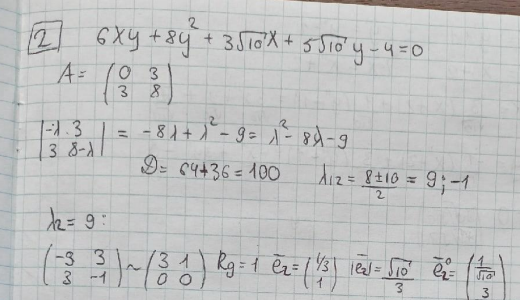 2 6xy + 8y² + 3√10 x + 5√10 y - 4 = 0
A = (0 3
3 8)
|-λ 3
3 8-λ| = -8λ + λ² - 9 = λ² - 8λ - 9
D = 64+36 = 100 λ12 = (8±10)/2 = 9; -1
λ2 = 9:
(-3 3
3 -1) ~ (3 1
0 0) Rg = 1 e̅2 = (1/3
1) |e̅2| = √10/3 e̅2⁰ = (1/√10
3)